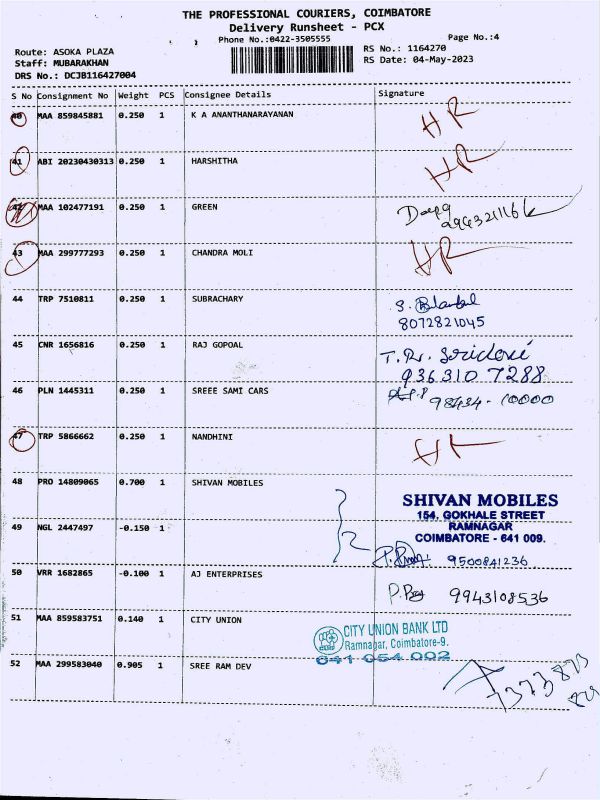 THE PROFESSIONAL COURIERS, COIMBATORE
Delivery Runsheet - PCX
Phone No.:0422-3505555
Page No.:4
Route: ASOKA PLAZA
RS No.: 1164270
Staff: MUBARAKHAN
RS Date: 04-May-2023
DRS No.: DCJB116427004
S No Consignment No Weight PCS Consignee Details Signature
40 MAA 859845881 0.250 1 K A ANANTHANARAYANAN HR
41 ABI 20230430313 0.250 1 HARSHITHA HR
42 MAA 102477191 0.250 1 GREEN
43 MAA 299777293 0.250 1 CHANDRA MOLI HR
44 TRP 7510811 0.250 1 SUBRACHARY
8072821045
45 CNR 1656816 0.250 1 RAJ GOPOAL
936310 7288
46 PLN 1445311 0.250 1 SREEE SAMI CARS 98434-10000
47 TRP 5866662 0.250 1 NANDHINI
48 PRO 14809065 0.700 1 SHIVAN MOBILES
SHIVAN MOBILES
154, GOKHALE STREET
RAMNAGAR
COIMBATORE - 641 009.
49 NGL 2447497 -0.150 1
9500841236
50 VRR 1682865 -0.100 1 AJ ENTERPRISES
9943108536
51 MAA 859583751 0.140 1 CITY UNION
CITY UNION BANK LTD
Ramnagar, Coimbatore-9.
641 054 002
52 MAA 299583040 0.905 1 SREE RAM DEV